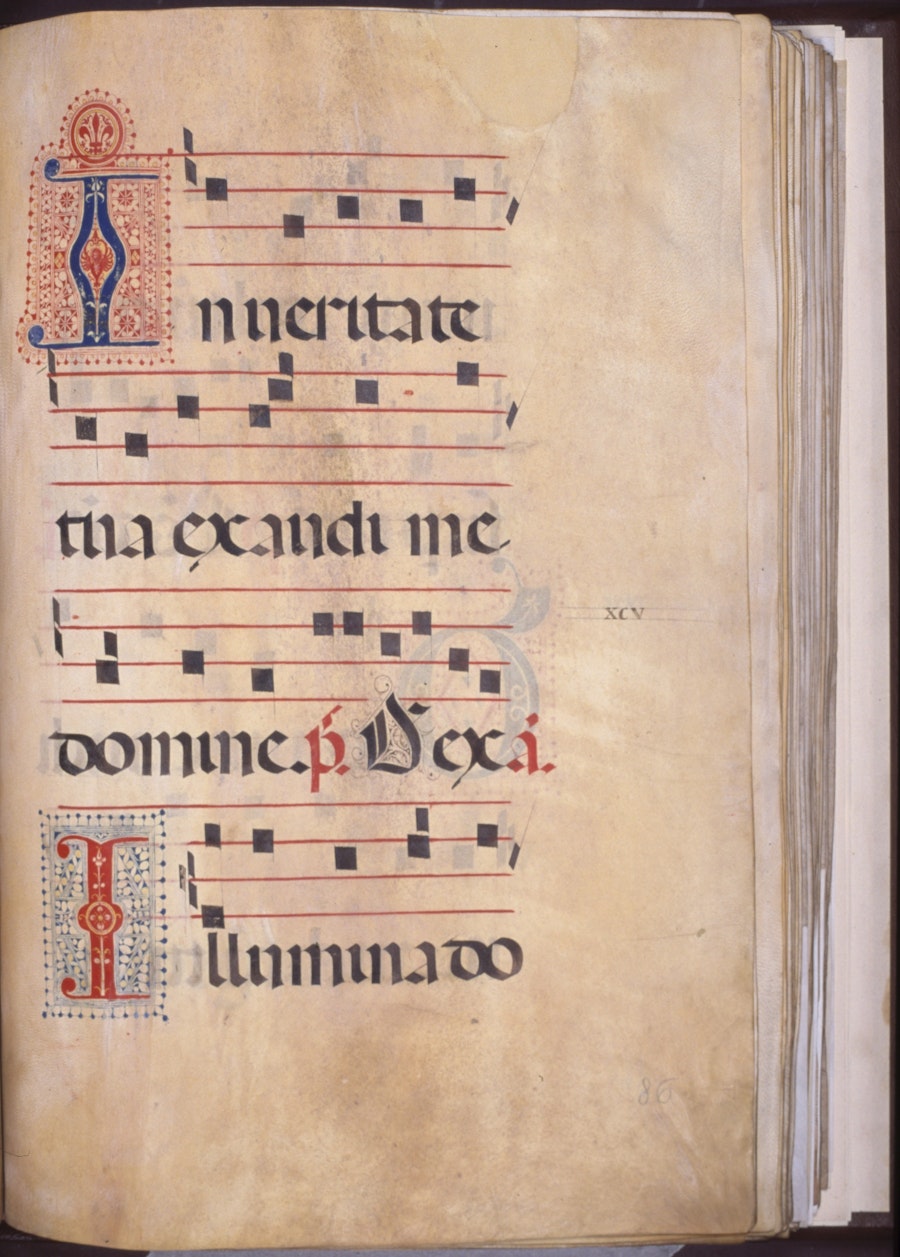 In ueritate
tua exaudi me
xcv
domine. p̄. D exa.
Illumina do
86